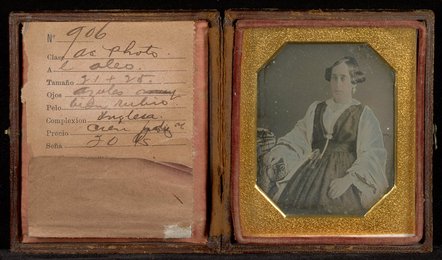 Nº 906
Clase de photo.
A l oleo.
Tamaño 21 + 25.
Ojos azules
Pelo bien rubio
Complexion Inglesa.
Precio
Seña 20